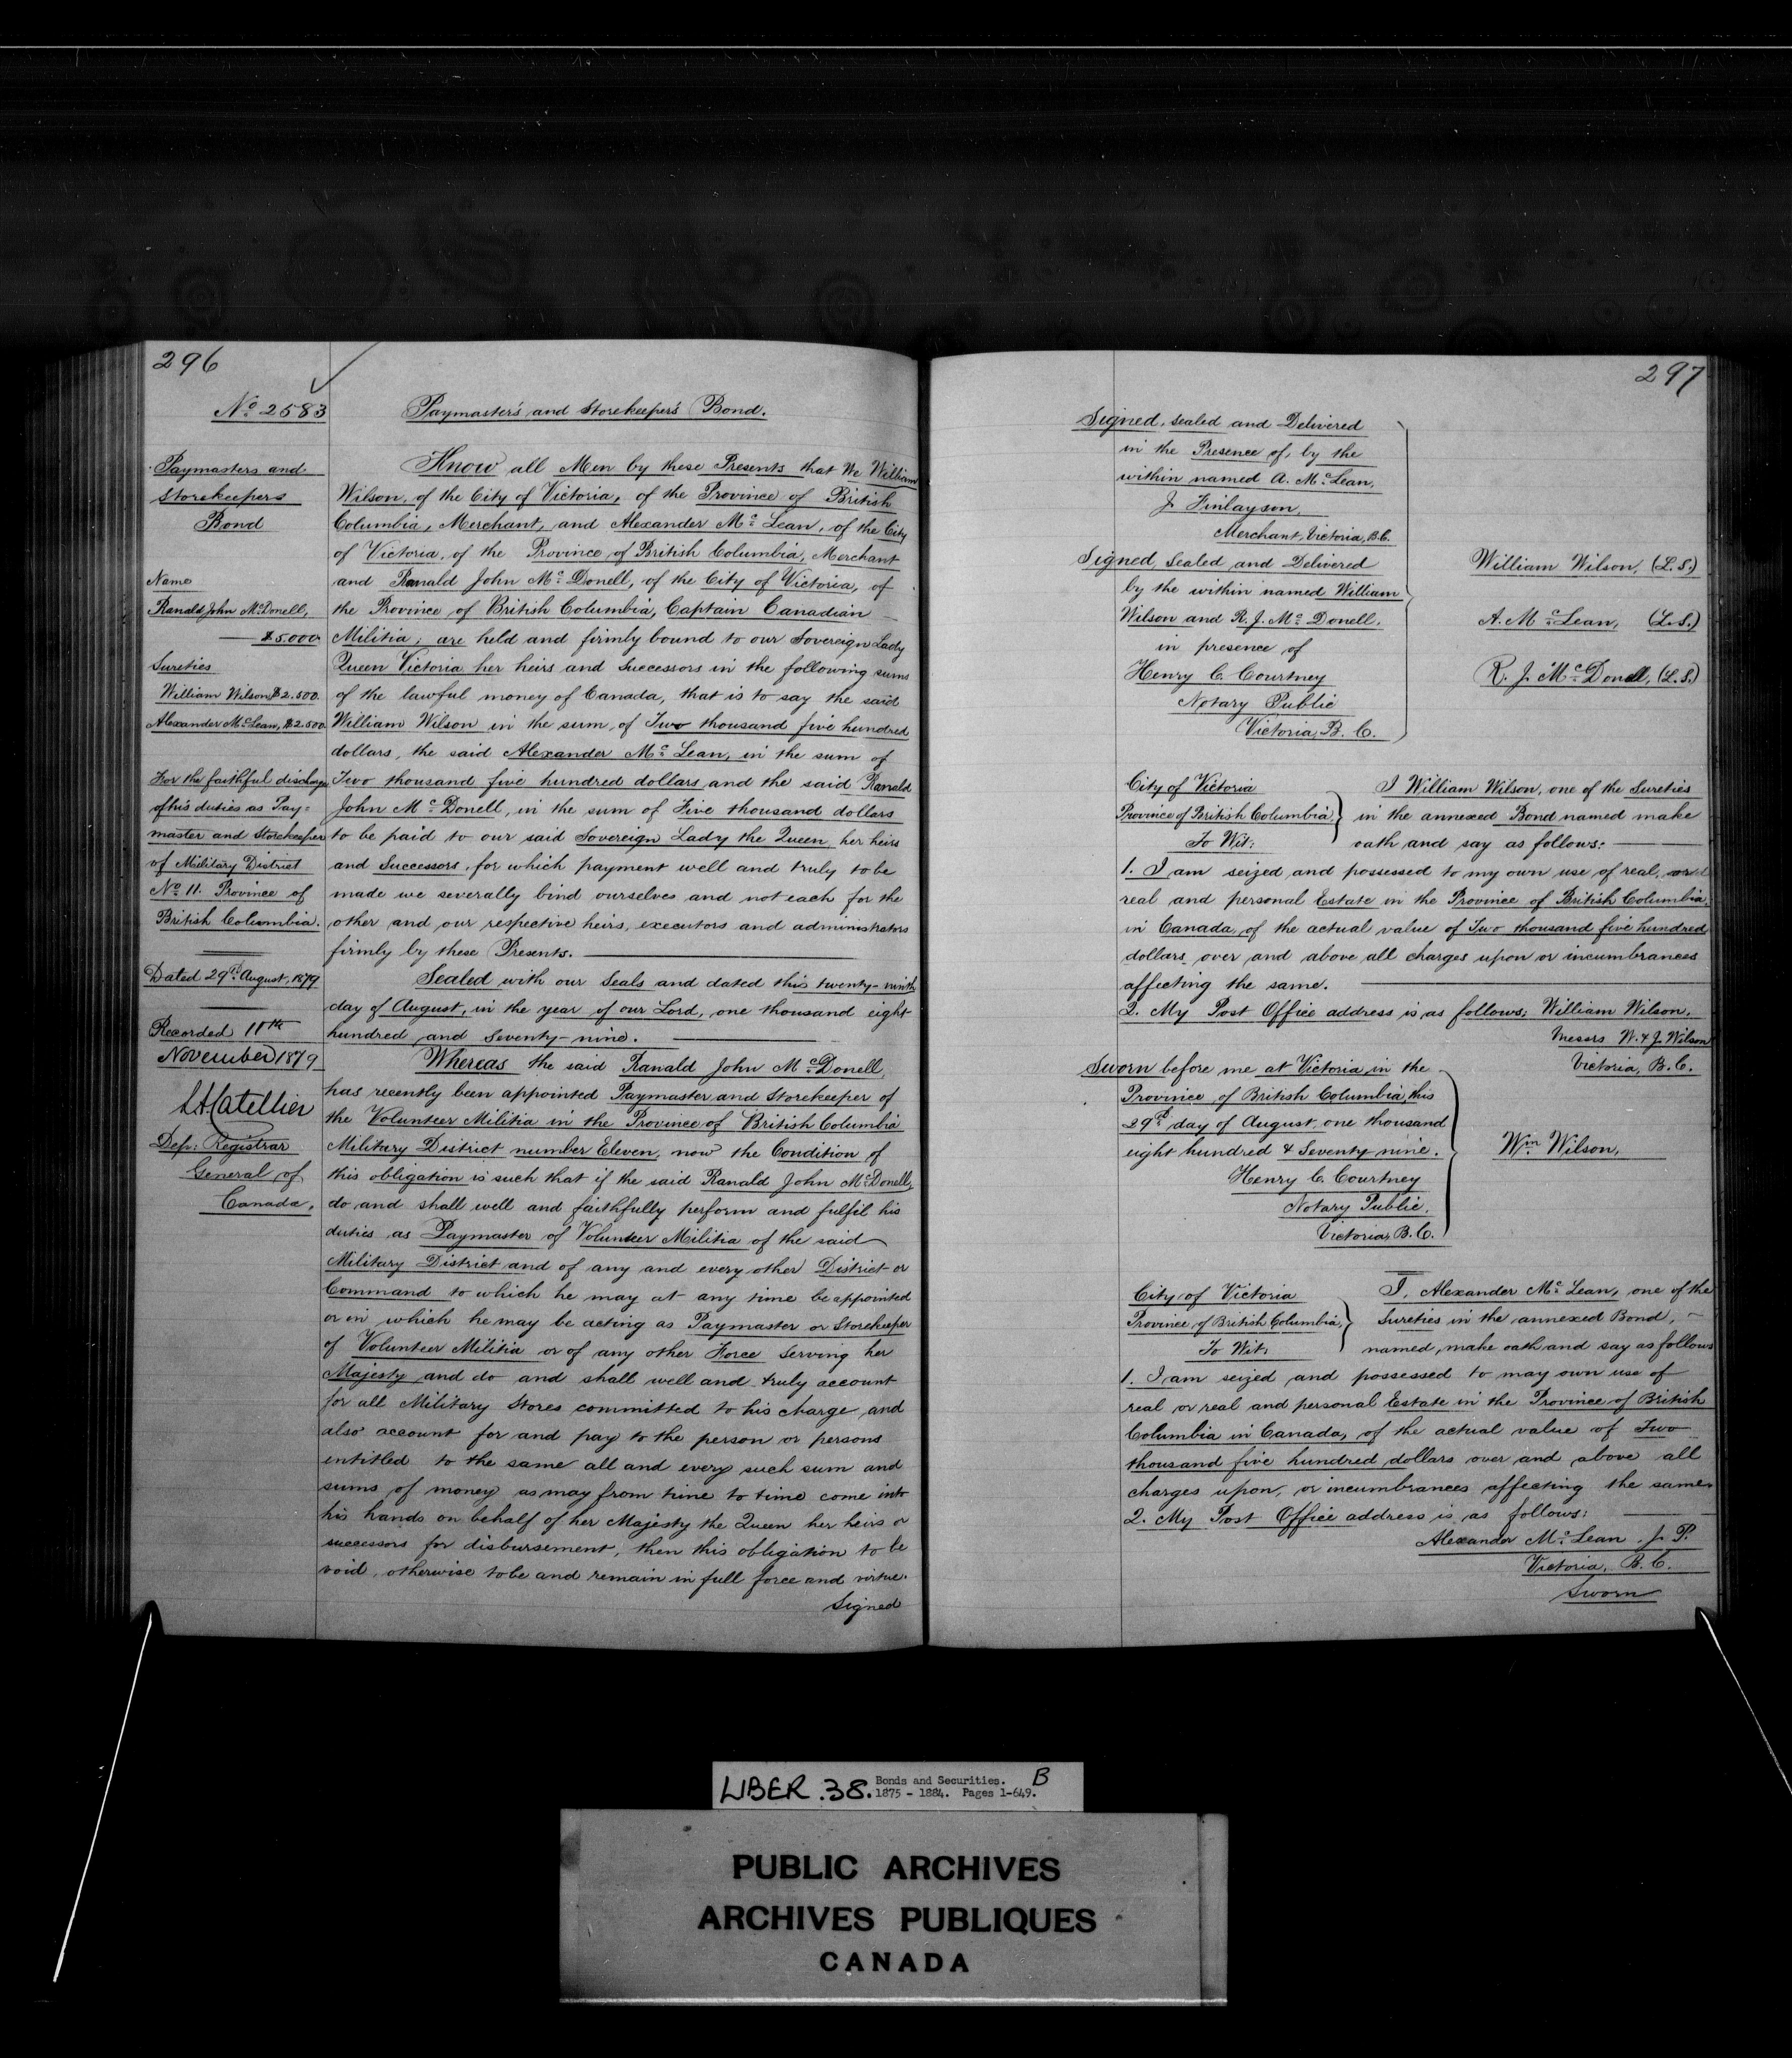 296
No. 2583
Paymasters and
Storekeepers
Bond
Name
Ranald John McDonell,
$5.000
Sureties
William Wilson $2.500.
Alexander McLean, $2.500
For the faithful discharge
of his duties as Pay=
master and Storekeeper
of Military District
No. 11. Province of
British Columbia.
Dated 29th August, 1879
Recorded 11th
November 1879
Dep. Registrar
General of
Canada.
Paymaster's and Storekeeper's Bond.
Know all Men by these Presents that We William
Wilson, of the City of Victoria, of the Province of British
Columbia, Merchant, and Alexander Mc Lean, of the City
of Victoria, of the Province of British Columbia, Merchant
and Ranald John Mc Donell, of the City of Victoria, of
the Province of British Columbia, Captain Canadian
Militia; are held and firmly bound to our Sovereign Lady
Queen Victoria her heirs and Successors in the following sums
of the lawful money of Canada, that is to say the said
William Wilson in the sum of Two thousand five hundred
dollars, the said Alexander Mc Lean, in the sum of
Two thousand five hundred dollars and the said Ranald
John Mc Donell, in the sum of Five thousand dollars
to be paid to our said Sovereign Lady the Queen her heirs
and Successors, for which payment well and truly to be
made we severally bind ourselves and not each for the
other and our respective heirs, executors and administrators
firmly by these Presents.
Sealed with our Seals and dated this twenty-ninth
day of August, in the year of our Lord, one thousand eight
hundred and seventy-nine.
Whereas the said Ranald John McDonell
has recently been appointed Paymaster and Storekeeper of
the Volunteer Militia in the Province of British Columbia
Military District number Eleven, now the Condition of
this obligation is such that if the said Ranald John McDonell,
do and shall well and faithfully perform and fulfil his
duties as Paymaster of Volunteer Militia of the said
Military District and of any and every other District or
Command to which he may at any time be appointed
or in which he may be acting as Paymaster or Storekeeper
of Volunteer Militia or of any other Force serving her
Majesty and do and shall well and truly account
for all Military Stores committed to his charge and
also account for and pay to the person or persons
entitled to the same all and every such sum and
sums of money as may from time to time come into
his hands on behalf of her Majesty the Queen her heirs or
successors for disbursement, then this obligation to be
void, otherwise to be and remain in full force and virtue.
Signed
297
Signed, sealed and Delivered
in the Presence of, by the
within named A. McLean,
J Finlayson,
Merchant, Victoria, B.C.
Signed Sealed and Delivered
by the within named William
Wilson and R. J. Mc Donell.
in presence of
Henry C. Courtney
Notary Public
Victoria, B. C.
William Wilson, (L.S.)
A. Mc Lean, (L.S.)
R. J. McDonell, (L.S.)
City of Victoria
Province of British Columbia,
To Wit:
I William Wilson, one of the Sureties
in the annexed Bond named make
oath and say as follows:
1. I am seized and possessed to my own use of real, or
real and personal Estate in the Province of British Columbia,
in Canada, of the actual value of Two thousand five hundred
dollars over and above all charges upon or incumbrances
affecting the same.
2. My Post Office address is as follows: William Wilson,
Messrs W. & J. Wilson
Victoria, B.C.
Sworn before me at Victoria in the
Province of British Columbia, this
29th day of August, one thousand
eight hundred & Seventy nine.
Henry C. Courtney
Notary Public.
Victoria, B.C.
Wm Wilson,
City of Victoria
Province of British Columbia,
To Wit:
I, Alexander McLean, one of the
Sureties in the annexed Bond,
named, make oath and say as follows
1. I am seized and possessed to may own use of
real or real and personal Estate in the Province of British
Columbia in Canada, of the actual value of Two
thousand five hundred dollars over and above all
charges upon, or incumbrances affecting the same.
2. My Post Office address is as follows:
Alexander McLean, J. P.
Victoria, B. C.
Sworn
LIBER .38. Bonds and Securities. B
1875 - 1884. Pages 1-649.
PUBLIC ARCHIVES
ARCHIVES PUBLIQUES
CANADA